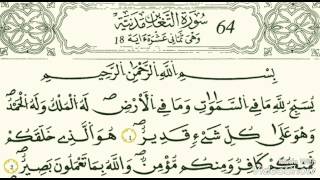 سُورَةُ التَّغَابُنِ مَدَنِيَّةٌ
64
وَهِيَ ثَمَانِي عَشْرَةَ آيَةً 18
بِسْمِ اللَّهِ الرَّحْمٰنِ الرَّحِيمِ
يُسَبِّحُ لِلَّهِ مَا فِي السَّمٰوَاتِ وَمَا فِي الْأَرْضِ لَهُ الْمُلْكُ وَلَهُ الْحَمْدُ
وَهُوَ عَلٰى كُلِّ شَيْءٍ قَدِيرٌ ١ هُوَ الَّذِي خَلَقَكُمْ
فَمِنْكُمْ كَافِرٌ وَمِنْكُمْ مُؤْمِنٌ وَاللَّهُ بِمَا تَعْمَلُونَ بَصِيرٌ ٢